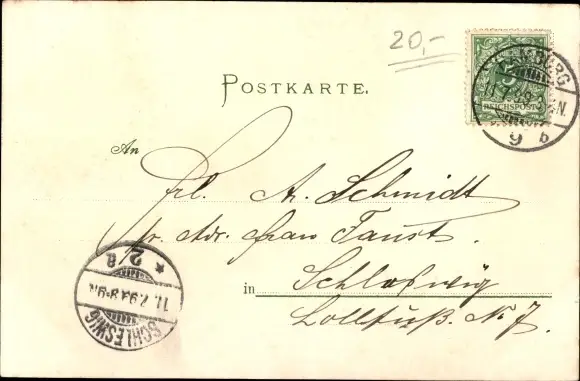 20,-
POSTKARTE.
REICHSPOST
MBURG
11.7.9
9 b
An
Frl. A. Schmidt
pr. Adr. Frau Faust.
in Schleswig
Lollfuß. No 7.
* 2 a
11.7.99.8-9N.
SCHLESWIG